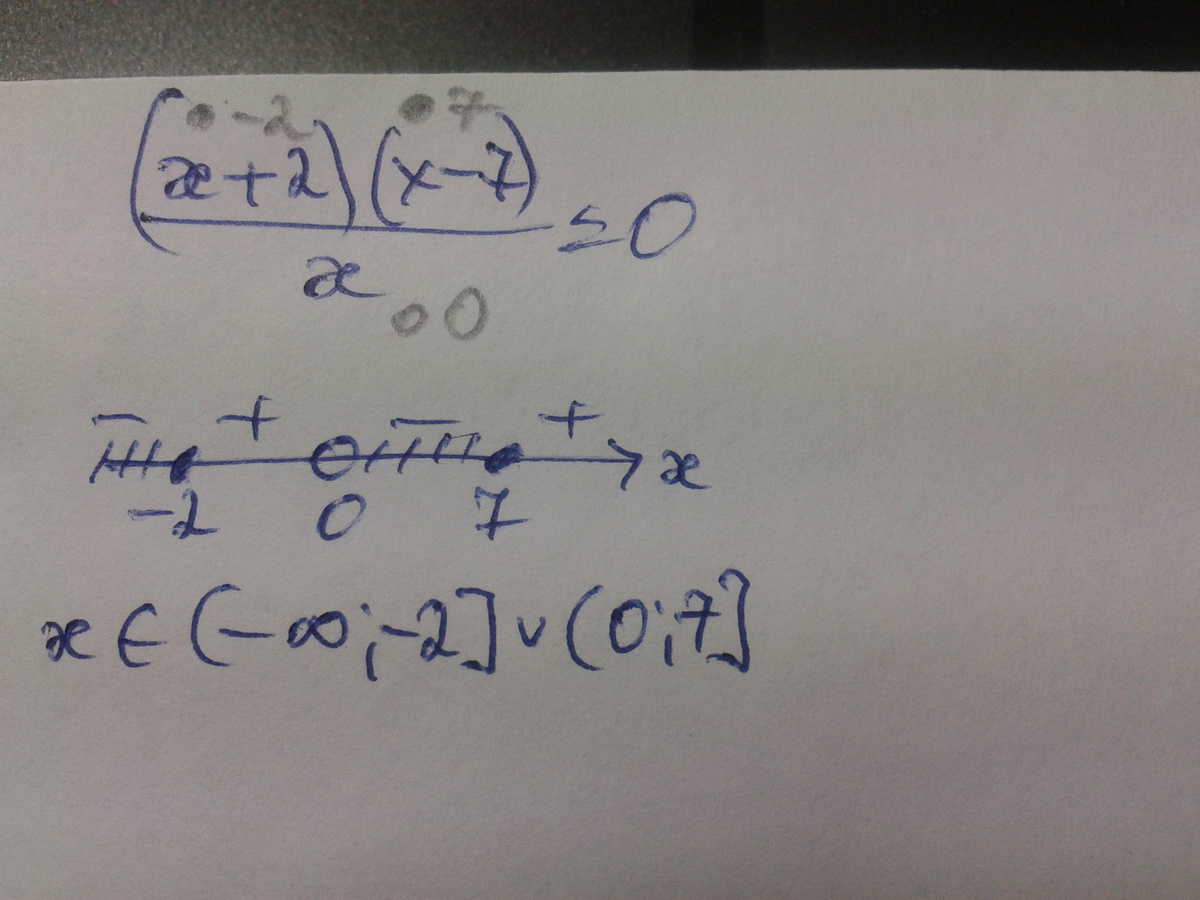 • -2 • 7
(x+2)(x-7)
≤0
x
∘ 0
- + - +
-2 0 7 x
x∈(-∞;-2]∪(0;7]